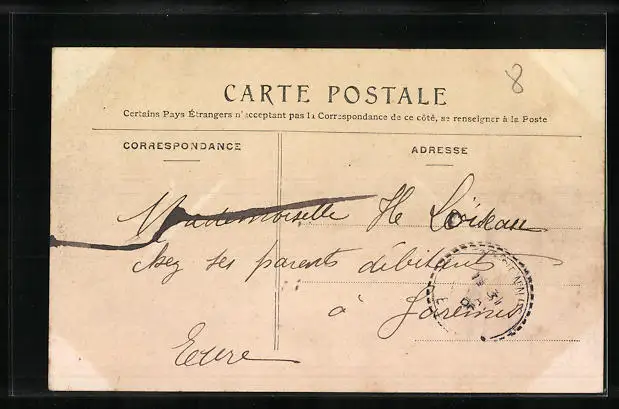 8
CARTE POSTALE
Certains Pays Étrangers n'acceptent pas la Correspondance de ce côté, se renseigner à la Poste
CORRESPONDANCE
ADRESSE
Mademoiselle H Loiseau
chez ses parents débitants
à
Eure